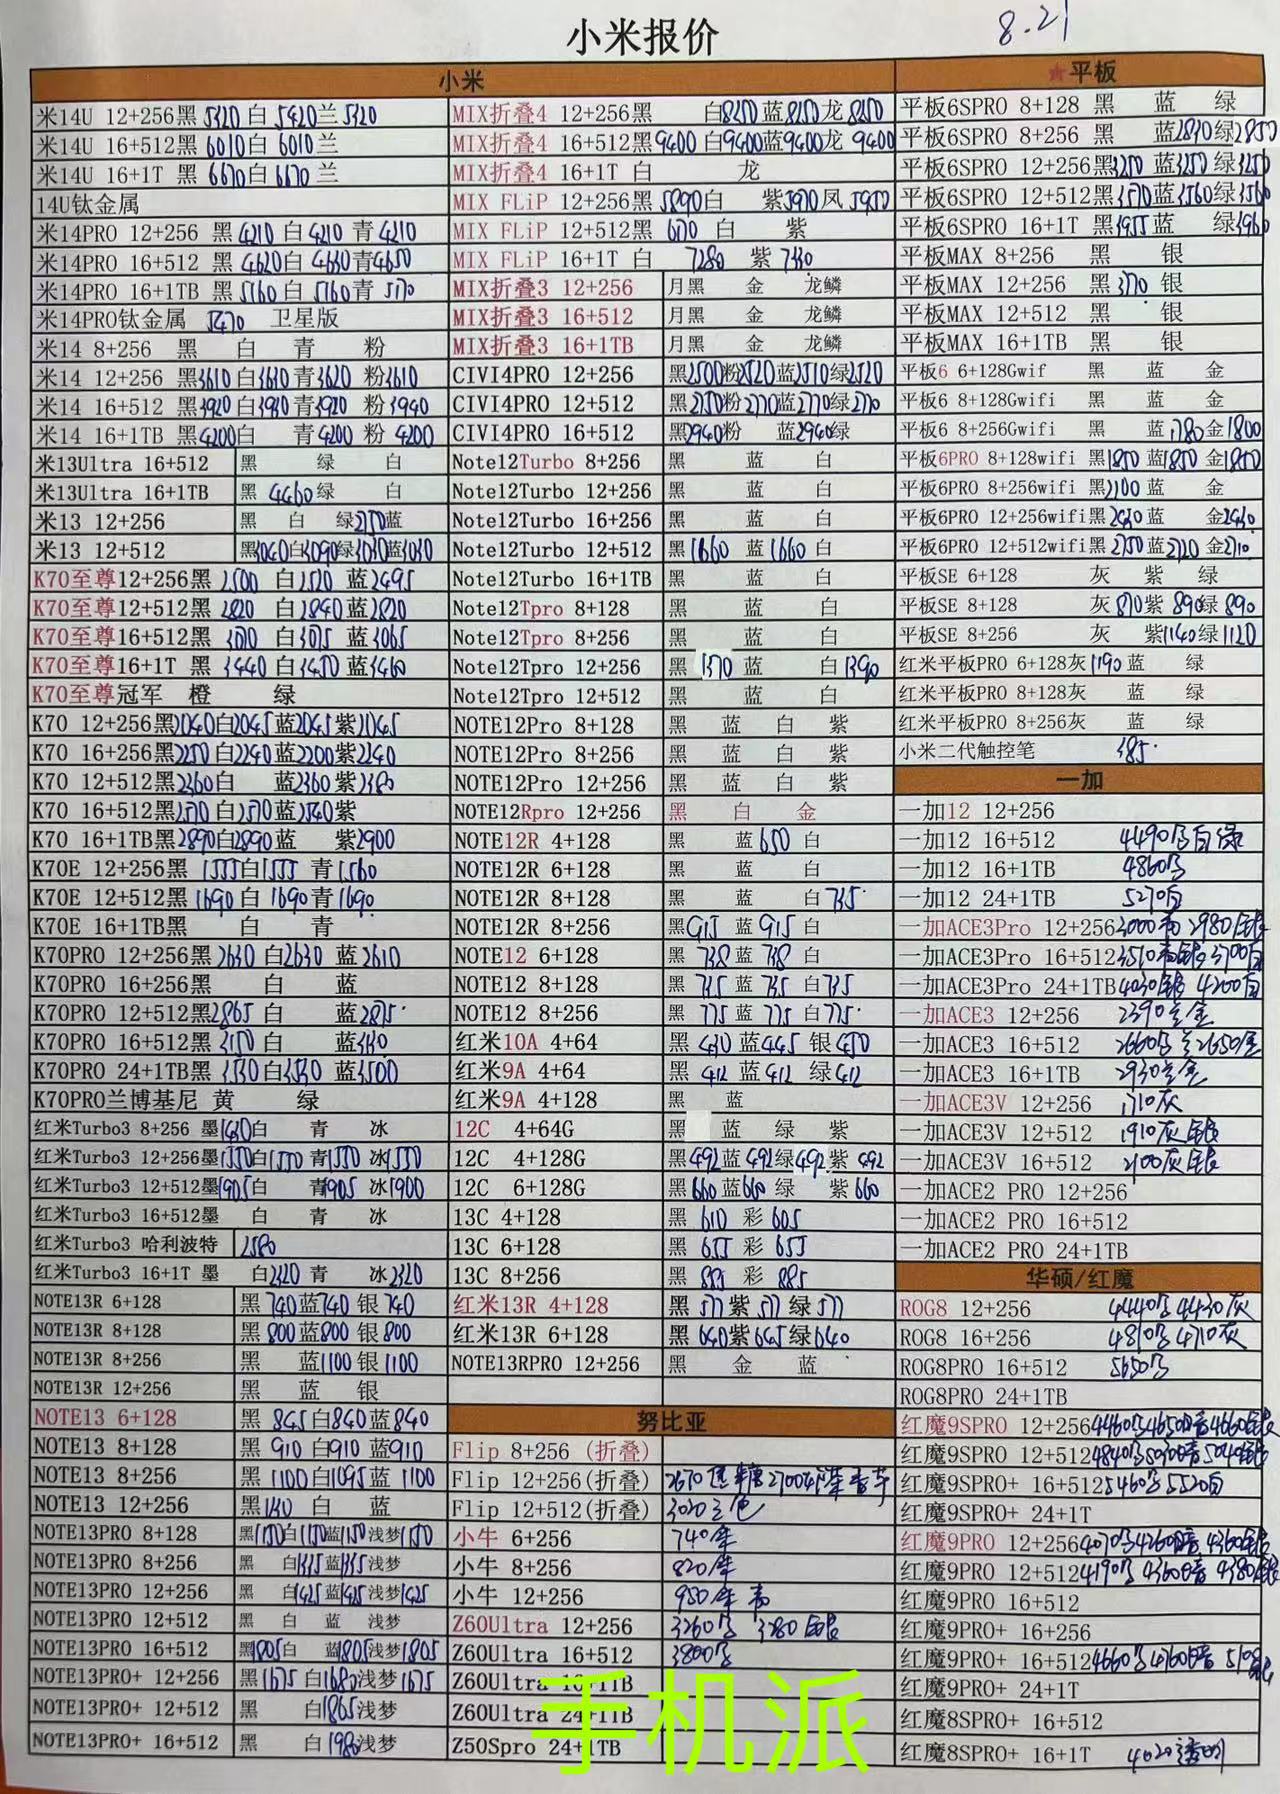 小米报价
8.21
小米
米14U 12+256黑 5420 白 5420兰 5420
米14U 16+512黑 6010白 6010兰
米14U 16+1T 黑 6670白 6670 兰
14U钛金属
米14PRO 12+256 黑 4210 白 4210 青 4210
米14PRO 16+512 黑 4620白 4630青4650
米14PRO 16+1TB 黑 5160 白 5160青 5170
米14PRO钛金属 5470 卫星版
米14 8+256 黑 白 青 粉
米14 12+256 黑3610 白3630青3620 粉3610
米14 16+512 黑3920白3930青3920 粉 3940
米14 16+1TB 黑4200白 青4200 粉 4200
米13Ultra 16+512 黑 绿 白
米13Ultra 16+1TB 黑 4460绿 白
米13 12+256 黑 白 绿2750蓝
米13 12+512 黑3040白3090绿3030蓝3030
K70至尊12+256黑 2500 白2520 蓝2495
K70至尊12+512黑 2820 白2840蓝2820
K70至尊16+512黑 3070 白3075 蓝3065
K70至尊16+1T 黑 3440 白3450 蓝3460
K70至尊冠军 橙 绿
K70 12+256黑2040白2045蓝2045紫2045
K70 16+256黑2250白2240蓝2200紫2240
K70 12+512黑2360白 蓝2360紫2380
K70 16+512黑2570白2570蓝2540紫
K70 16+1TB黑2890白2890蓝 紫2900
K70E 12+256黑 1555白1555 青1560
K70E 12+512黑 1690白 1690青1690
K70E 16+1TB黑 白 青
K70PRO 12+256黑 2630 白2630 蓝 2610
K70PRO 16+256黑 白 蓝
K70PRO 12+512黑2865 白 蓝2875
K70PRO 16+512黑3150白 蓝3130
K70PRO 24+1TB黑 3530白3530 蓝3500
K70PRO兰博基尼 黄 绿
红米Turbo3 8+256 墨1430白 青 冰
红米Turbo3 12+256墨1550白1550 青1550 冰1550
红米Turbo3 12+512墨1905白 青1905 冰1900
红米Turbo3 16+512墨 白 青 冰
红米Turbo3 哈利波特 2580
红米Turbo3 16+1T 墨 白2320 青 冰2320
NOTE13R 6+128 黑 740蓝740 银 740
NOTE13R 8+128 黑 800蓝800 银 800
NOTE13R 8+256 黑 蓝1100 银1100
NOTE13R 12+256 黑 蓝 银
NOTE13 6+128 黑 845白840蓝 840
NOTE13 8+128 黑 910 白910 蓝910
NOTE13 8+256 黑 1100白1095蓝 1100
NOTE13 12+256 黑1130 白 蓝
NOTE13PRO 8+128 黑1150白1150蓝1150浅梦1150
NOTE13PRO 8+256 黑 白1335蓝1335浅梦
NOTE13PRO 12+256 黑 白1425蓝1425浅梦1425
NOTE13PRO 12+512 黑 白 蓝 浅梦
NOTE13PRO 16+512 黑1805白 蓝1805浅梦1805
NOTE13PRO+ 12+256 黑1675 白1680浅梦1675
NOTE13PRO+ 12+512 黑 白1865浅梦
NOTE13PRO+ 16+512 黑 白1980浅梦
MIX折叠4 12+256黑 白8250蓝8250龙8250
MIX折叠4 16+512黑9400 白9400蓝9400龙 9400
MIX折叠4 16+1T 白 龙
MIX FLiP 12+256黑 5890白 紫5970凤 5950
MIX FLiP 12+512黑 6170 白 紫
MIX FLiP 16+1T 白 7280 紫 7330
MIX折叠3 12+256 月黑 金 龙鳞
MIX折叠3 16+512 月黑 金 龙鳞
MIX折叠3 16+1TB 月黑 金 龙鳞
CIVI4PRO 12+256 黑2500粉2520蓝2510绿2520
CIVI4PRO 12+512 黑2750粉2770蓝2770绿2770
CIVI4PRO 16+512 黑2940粉 蓝2940绿
Note12Turbo 8+256 黑 蓝 白
Note12Turbo 12+256 黑 蓝 白
Note12Turbo 16+256 黑 蓝 白
Note12Turbo 12+512 黑1660 蓝1660 白
Note12Turbo 16+1TB 黑 蓝 白
Note12Tpro 8+128 黑 蓝 白
Note12Tpro 8+256 黑 蓝 白
Note12Tpro 12+256 黑 1370 蓝 白1390
Note12Tpro 12+512 黑 蓝 白
NOTE12Pro 8+128 黑 蓝 白 紫
NOTE12Pro 8+256 黑 蓝 白 紫
NOTE12Pro 12+256 黑 蓝 白 紫
NOTE12Rpro 12+256 黑 白 金
NOTE12R 4+128 黑 蓝650 白
NOTE12R 6+128 黑 蓝 白
NOTE12R 8+128 黑 蓝 白735
NOTE12R 8+256 黑915 蓝 915 白
NOTE12 6+128 黑 738 蓝 738 白
NOTE12 8+128 黑 735 蓝 735 白735
NOTE12 8+256 黑 775 蓝 775 白775
红米10A 4+64 黑 430 蓝445 银450
红米9A 4+64 黑 412 蓝 412 绿412
红米9A 4+128 黑 蓝
12C 4+64G 黑 蓝 绿 紫
12C 4+128G 黑492蓝 492绿492紫 492
12C 6+128G 黑660蓝660 绿 紫 660
13C 4+128 黑 610 彩 605
13C 6+128 黑 655 彩 655
13C 8+256 黑 885 彩 885
红米13R 4+128 黑 577 紫 577 绿577
红米13R 6+128 黑 640紫645绿640
NOTE13RPRO 12+256 黑 金 蓝
努比亚
Flip 8+256 (折叠)
Flip 12+256(折叠)
Flip 12+512(折叠) 3020
小牛 6+256 740
小牛 8+256 820
小牛 12+256 950
Z60Ultra 12+256 3260 3280
Z60Ultra 16+512 3800
Z60Ultra 16+1TB
Z60Ultra 24+1TB
Z50Spro 24+1TB
★平板
平板6SPRO 8+128 黑 蓝 绿
平板6SPRO 8+256 黑 蓝2830绿2850
平板6SPRO 12+256黑3250 蓝3250 绿3250
平板6SPRO 12+512黑3570蓝3560绿3560
平板6SPRO 16+1T 黑3955 蓝 绿3960
平板MAX 8+256 黑 银
平板MAX 12+256 黑3770 银
平板MAX 12+512 黑 银
平板MAX 16+1TB 黑 银
平板6 6+128Gwif 黑 蓝 金
平板6 8+128Gwifi 黑 蓝 金
平板6 8+256Gwifi 黑 蓝1780金1800
平板6PRO 8+128wifi 黑1850 蓝1850 金1850
平板6PRO 8+256wifi 黑2100 蓝 金
平板6PRO 12+256wifi黑2430蓝 金2430
平板6PRO 12+512wifi黑2750蓝2720 金2710
平板SE 6+128 灰 紫 绿
平板SE 8+128 灰 870紫 890绿 890
平板SE 8+256 灰 紫1140绿1120
红米平板PRO 6+128灰1190 蓝 绿
红米平板PRO 8+128灰 蓝 绿
红米平板PRO 8+256灰 蓝 绿
小米二代触控笔 385
一加
一加12 12+256
一加12 16+512 4490
一加12 16+1TB 4860
一加12 24+1TB 5270白
一加ACE3Pro 12+256 3000 2980银
一加ACE3Pro 16+512
一加ACE3Pro 24+1TB4030银 4200白
一加ACE3 12+256 2390兰金
一加ACE3 16+512
一加ACE3 16+1TB 2930兰金
一加ACE3V 12+256 1710灰
一加ACE3V 12+512 1910灰银
一加ACE3V 16+512 2100灰银
一加ACE2 PRO 12+256
一加ACE2 PRO 16+512
一加ACE2 PRO 24+1TB
华硕/红魔
ROG8 12+256 4440 4430灰
ROG8 16+256 4810 4710灰
ROG8PRO 16+512 5650
ROG8PRO 24+1TB
红魔9SPRO 12+256
红魔9SPRO 12+512
红魔9SPRO+ 16+512 5460 5520白
红魔9SPRO+ 24+1T
红魔9PRO 12+256
红魔9PRO 12+512
红魔9PRO 16+512
红魔9PRO+ 16+256
红魔9PRO+ 16+512
红魔9PRO+ 24+1T
红魔8SPRO+ 16+512
红魔8SPRO+ 16+1T 4020透明
手机派